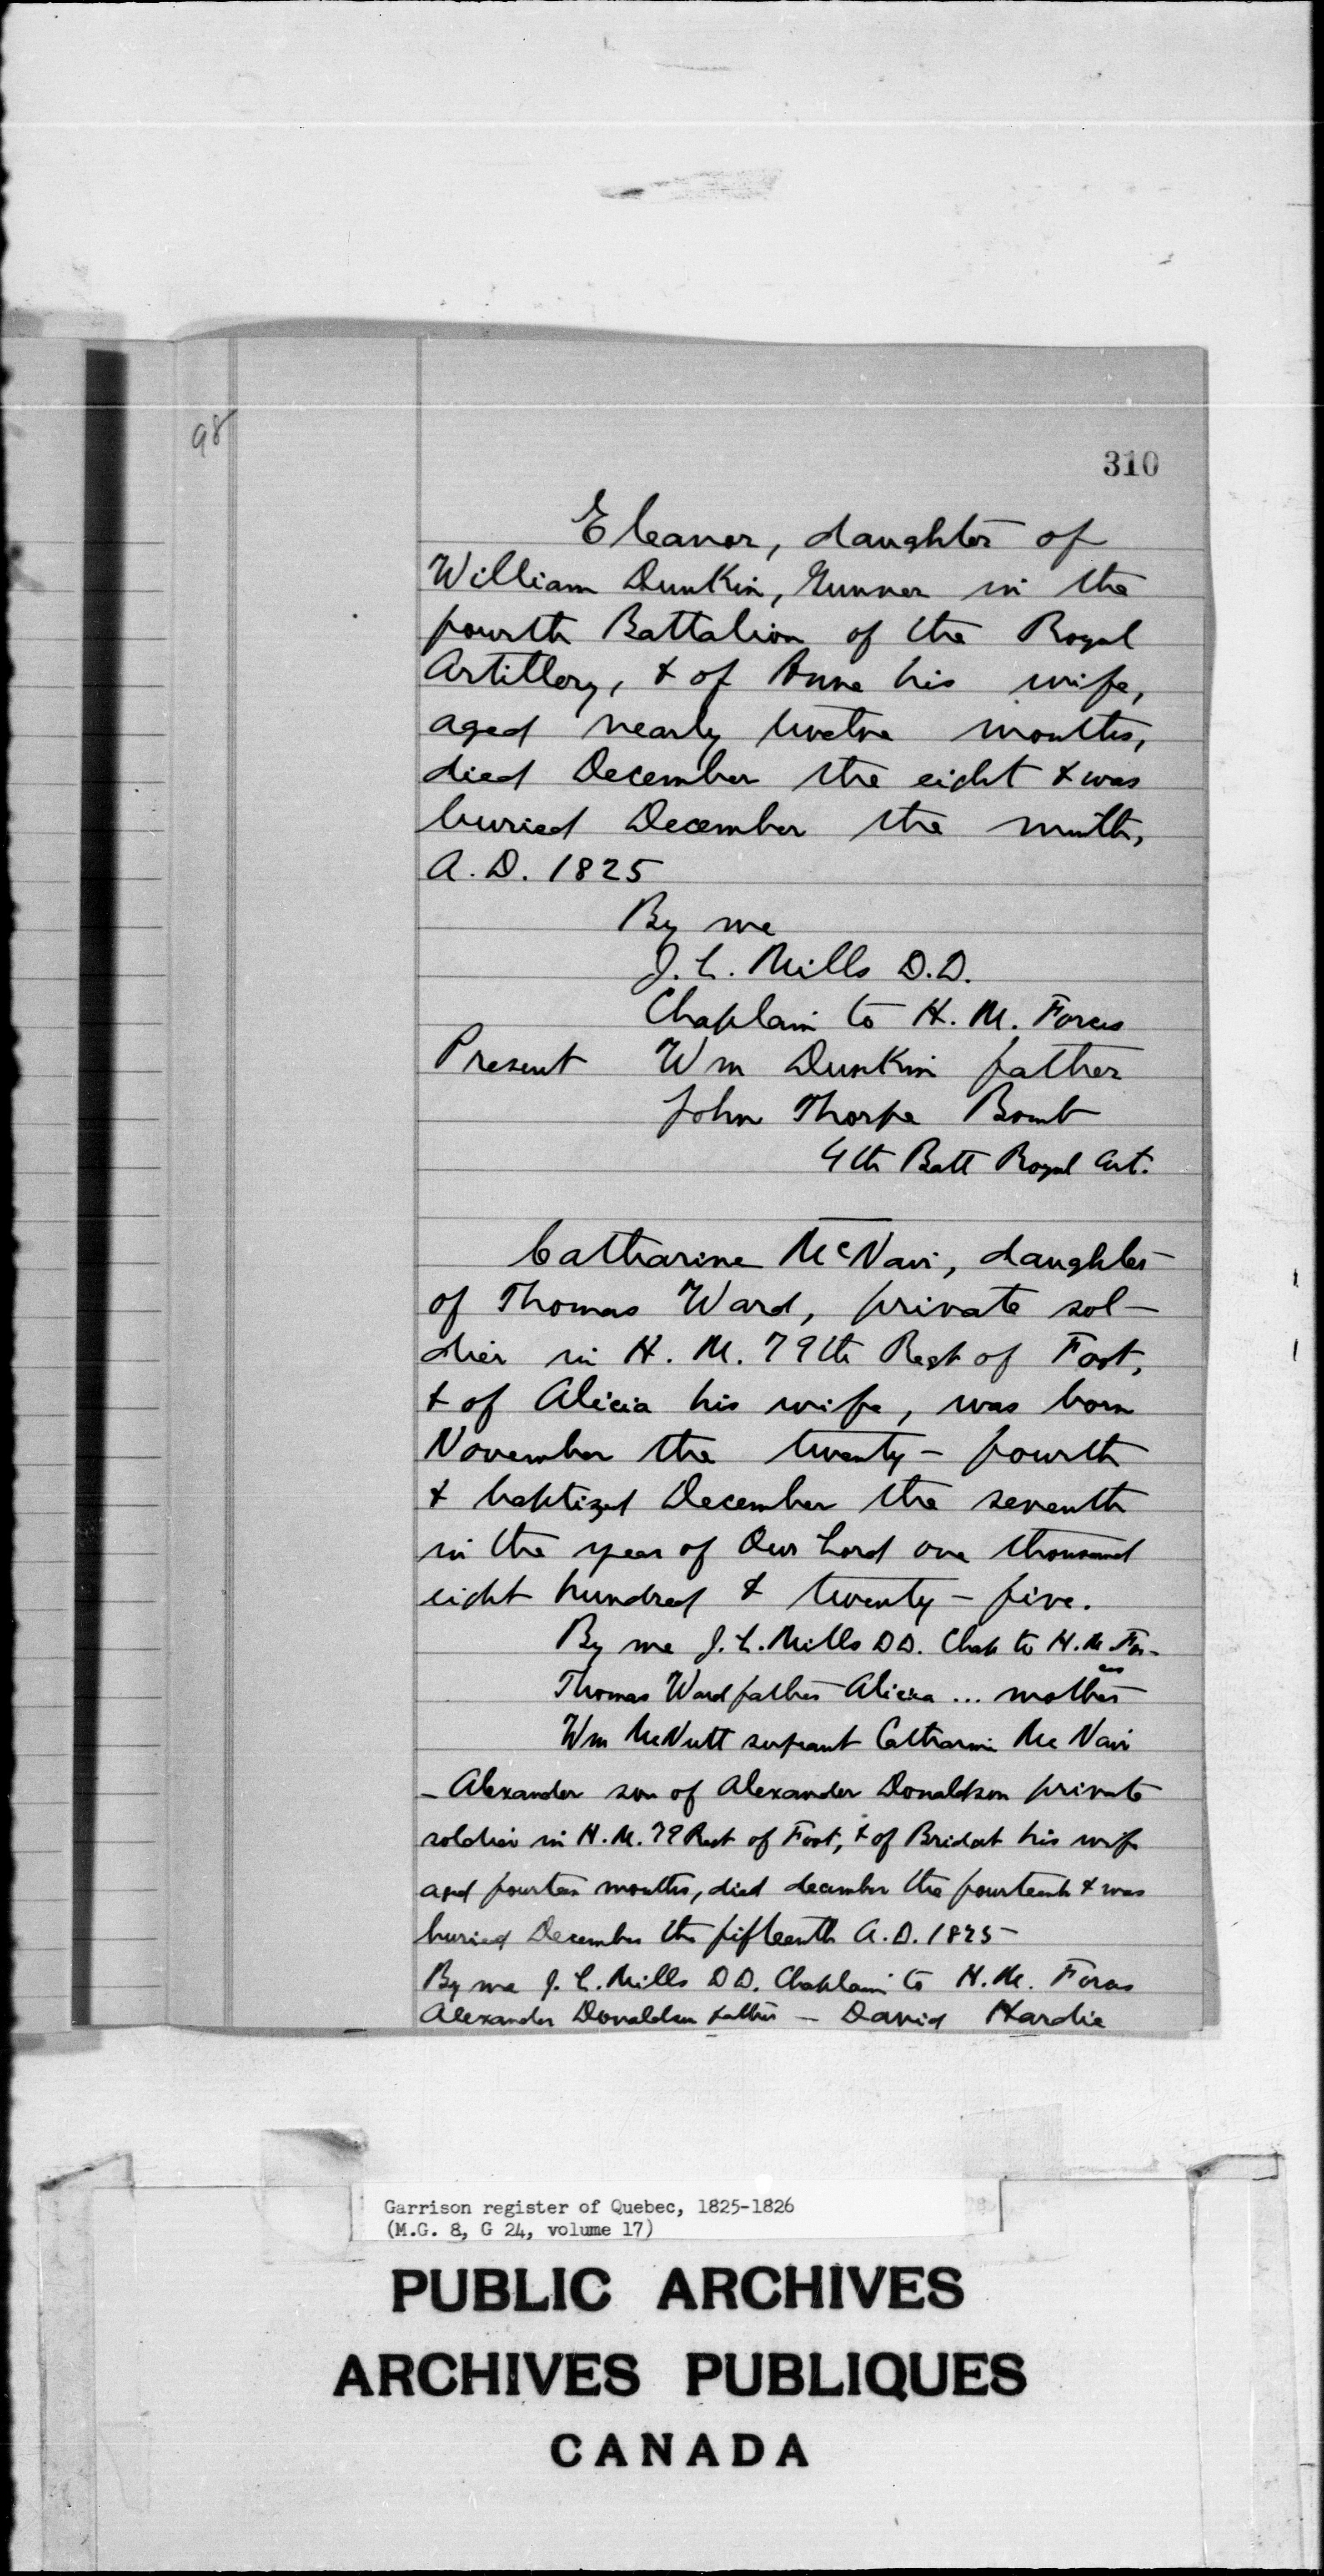 98
310
Eleanor, daughter of
William Dunkin, Gunner in the
fourth Battalion of the Royal
Artillery, & of Anne his wife,
aged nearly twelve months,
died December the eight & was
buried December the ninth,
A.D. 1825
By me
J. L. Mills D.D.
Chaplain to H. M. Forces
Present Wm Dunkin father
John Thorpe Bomb
4th Batt Royal Art.
Catharine McNavi, daughter
of Thomas Ward, private sol-
dier in H. M. 79th Regt of Foot,
& of Alicia his wife, was born
November the twenty-fourth
& baptized December the seventh
in the year of Our Lord one thousand
eight hundred & twenty-five.
By me J. L. Mills D.D. Chap to H. M. For-
ces
Thomas Ward father Alicia ... mother
Wm McNutt serjeant Catharine Mc Navi
- Alexander son of Alexander Donaldson private
soldier in H. M. 79 Regt of Foot, & of Bridget his wife
aged fourteen months, died december the fourteenth & was
buried December the fifteenth A.D. 1825
By me J. L. Mills D D. Chaplain to H. M. Forces
Alexander Donaldson father - David Hardie
Garrison register of Quebec, 1825-1826
(M.G. 8, G 24, volume 17)
PUBLIC ARCHIVES
ARCHIVES PUBLIQUES
CANADA